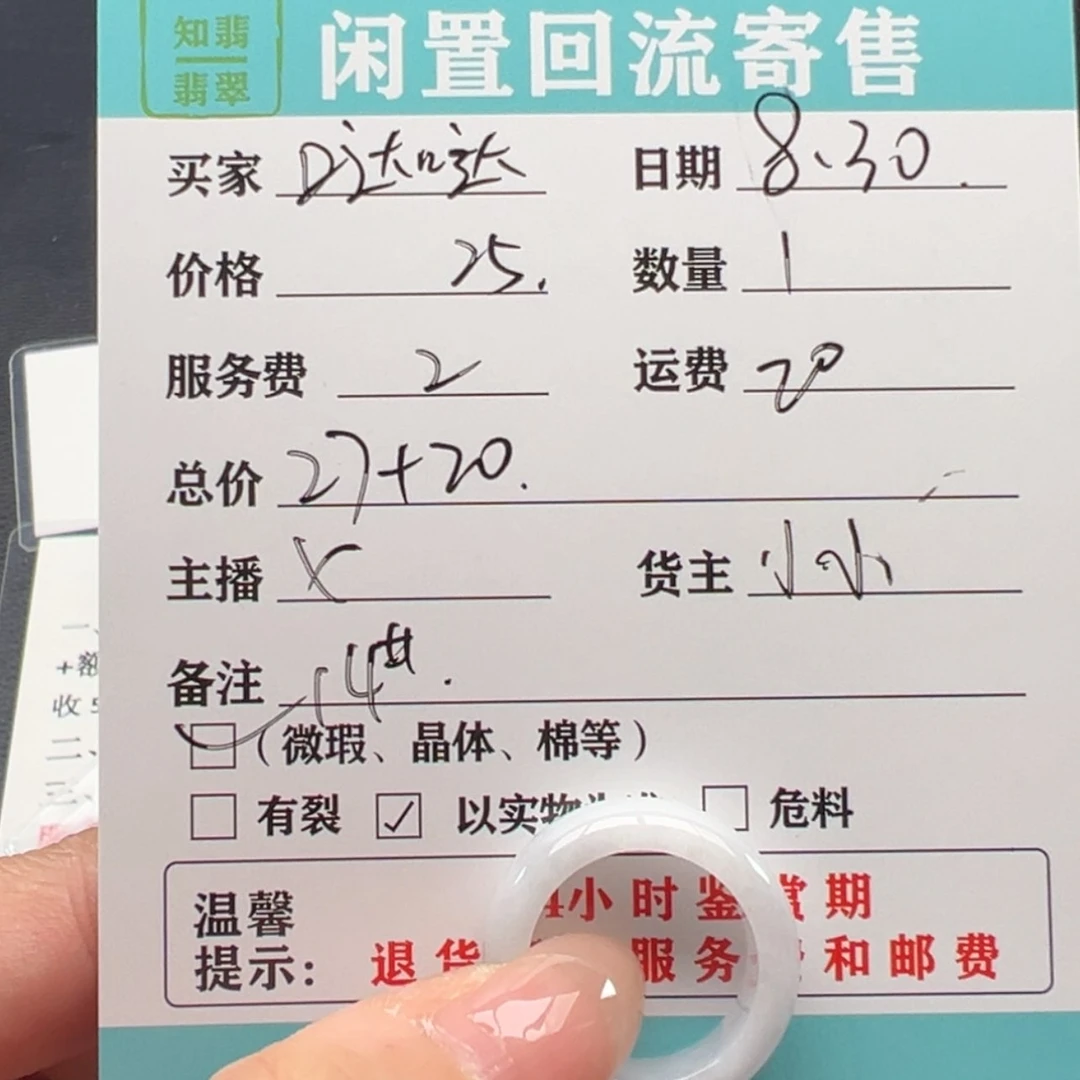 知翡翡翠
闲置回流寄售
买家 哒哒哒 日期 8.30.
价格 25. 数量 1
服务费 2 运费 20
总价 27+20.
主播 X 货主 小小
备注 14#.
(微瑕、晶体、棉等)
有裂 ✓ 以实物 危料
温馨 4小时鉴赏期
提示: 退货 服务 和邮费
一、
+额
收5
二、
三、